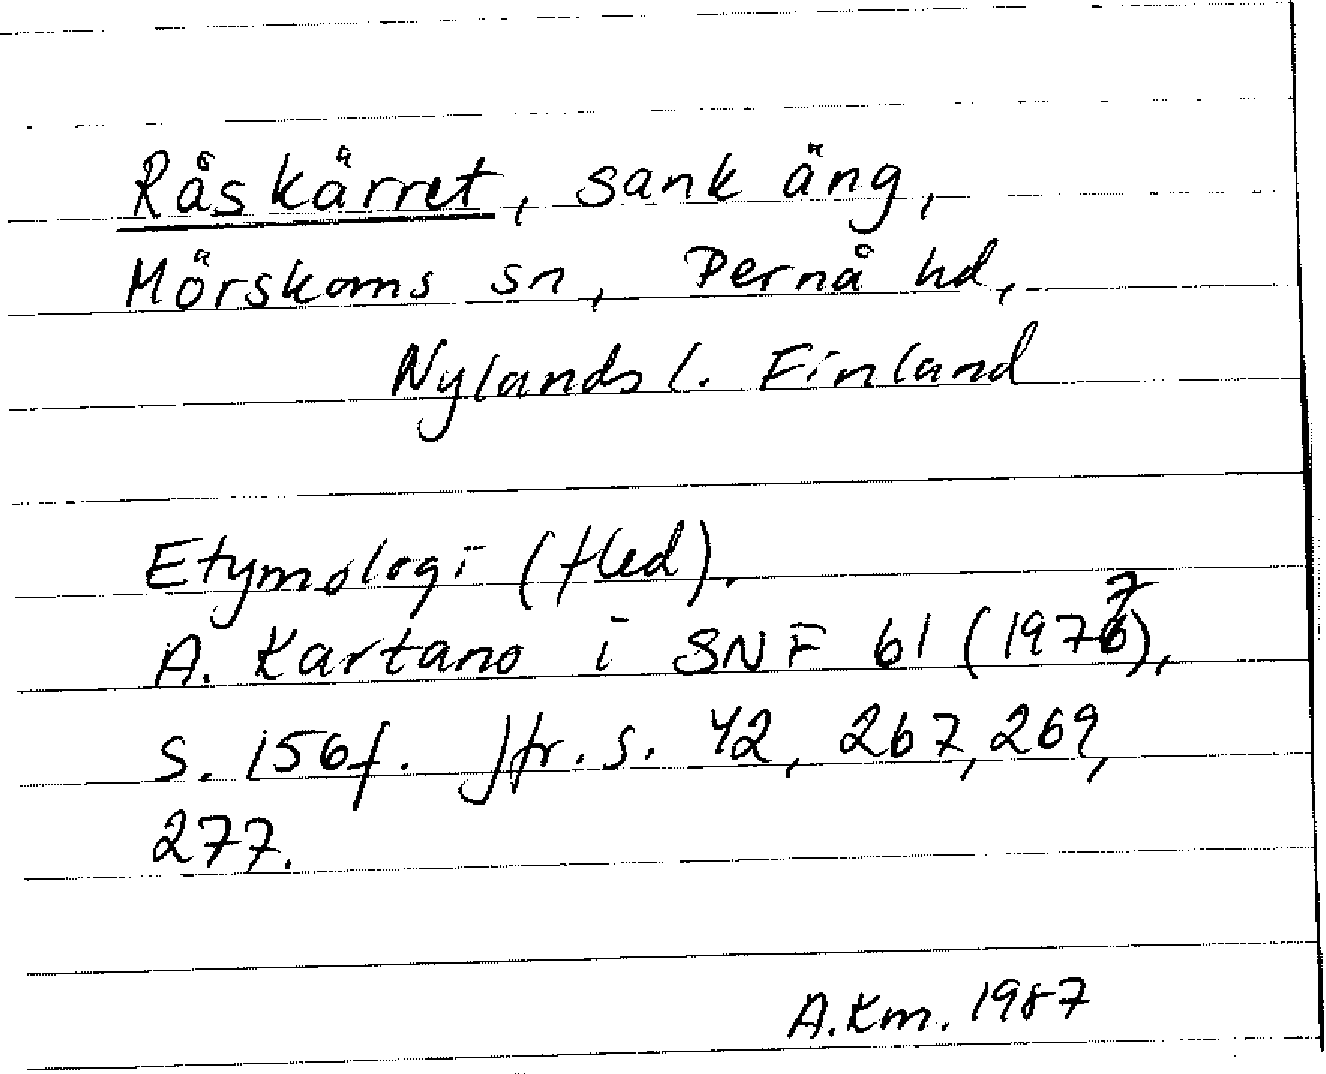 Råskärret, sank äng,
Mörskoms sn, Pernå hd,
Nylands l. Finland
Etymologi (fled).
A. Kartano i SNF 61 (1977),
s. 156f. Jfr. s. 42, 267, 269,
277.
A.Km. 1987